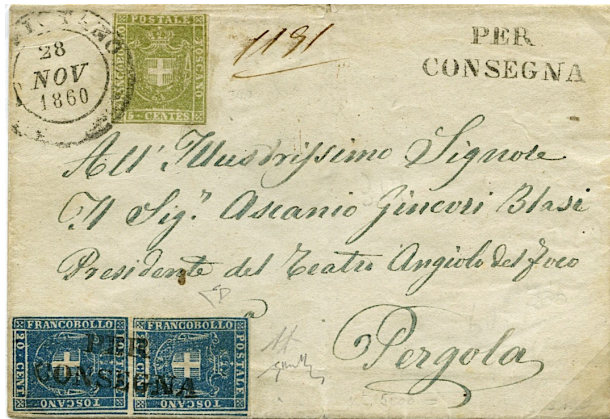 28
NOV
1860
FRANCOBOLLO POSTALE TOSCANO
5 CENTES
1181
PER
CONSEGNA
All' Illustrissimo Signore
Il Sigr. Ascanio Ginevri Blasi
Presidente del Teatro Angiolo del Foco
Pergola
FRANCOBOLLO FRANCOBOLLO
20 CENT POSTALE POSTALE
TOSCANO TOSCANO
PER
CONSEGNA